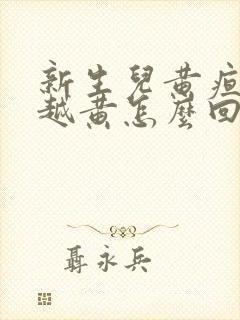 新生兒黄疸
越黄怎麼回
聶永兵